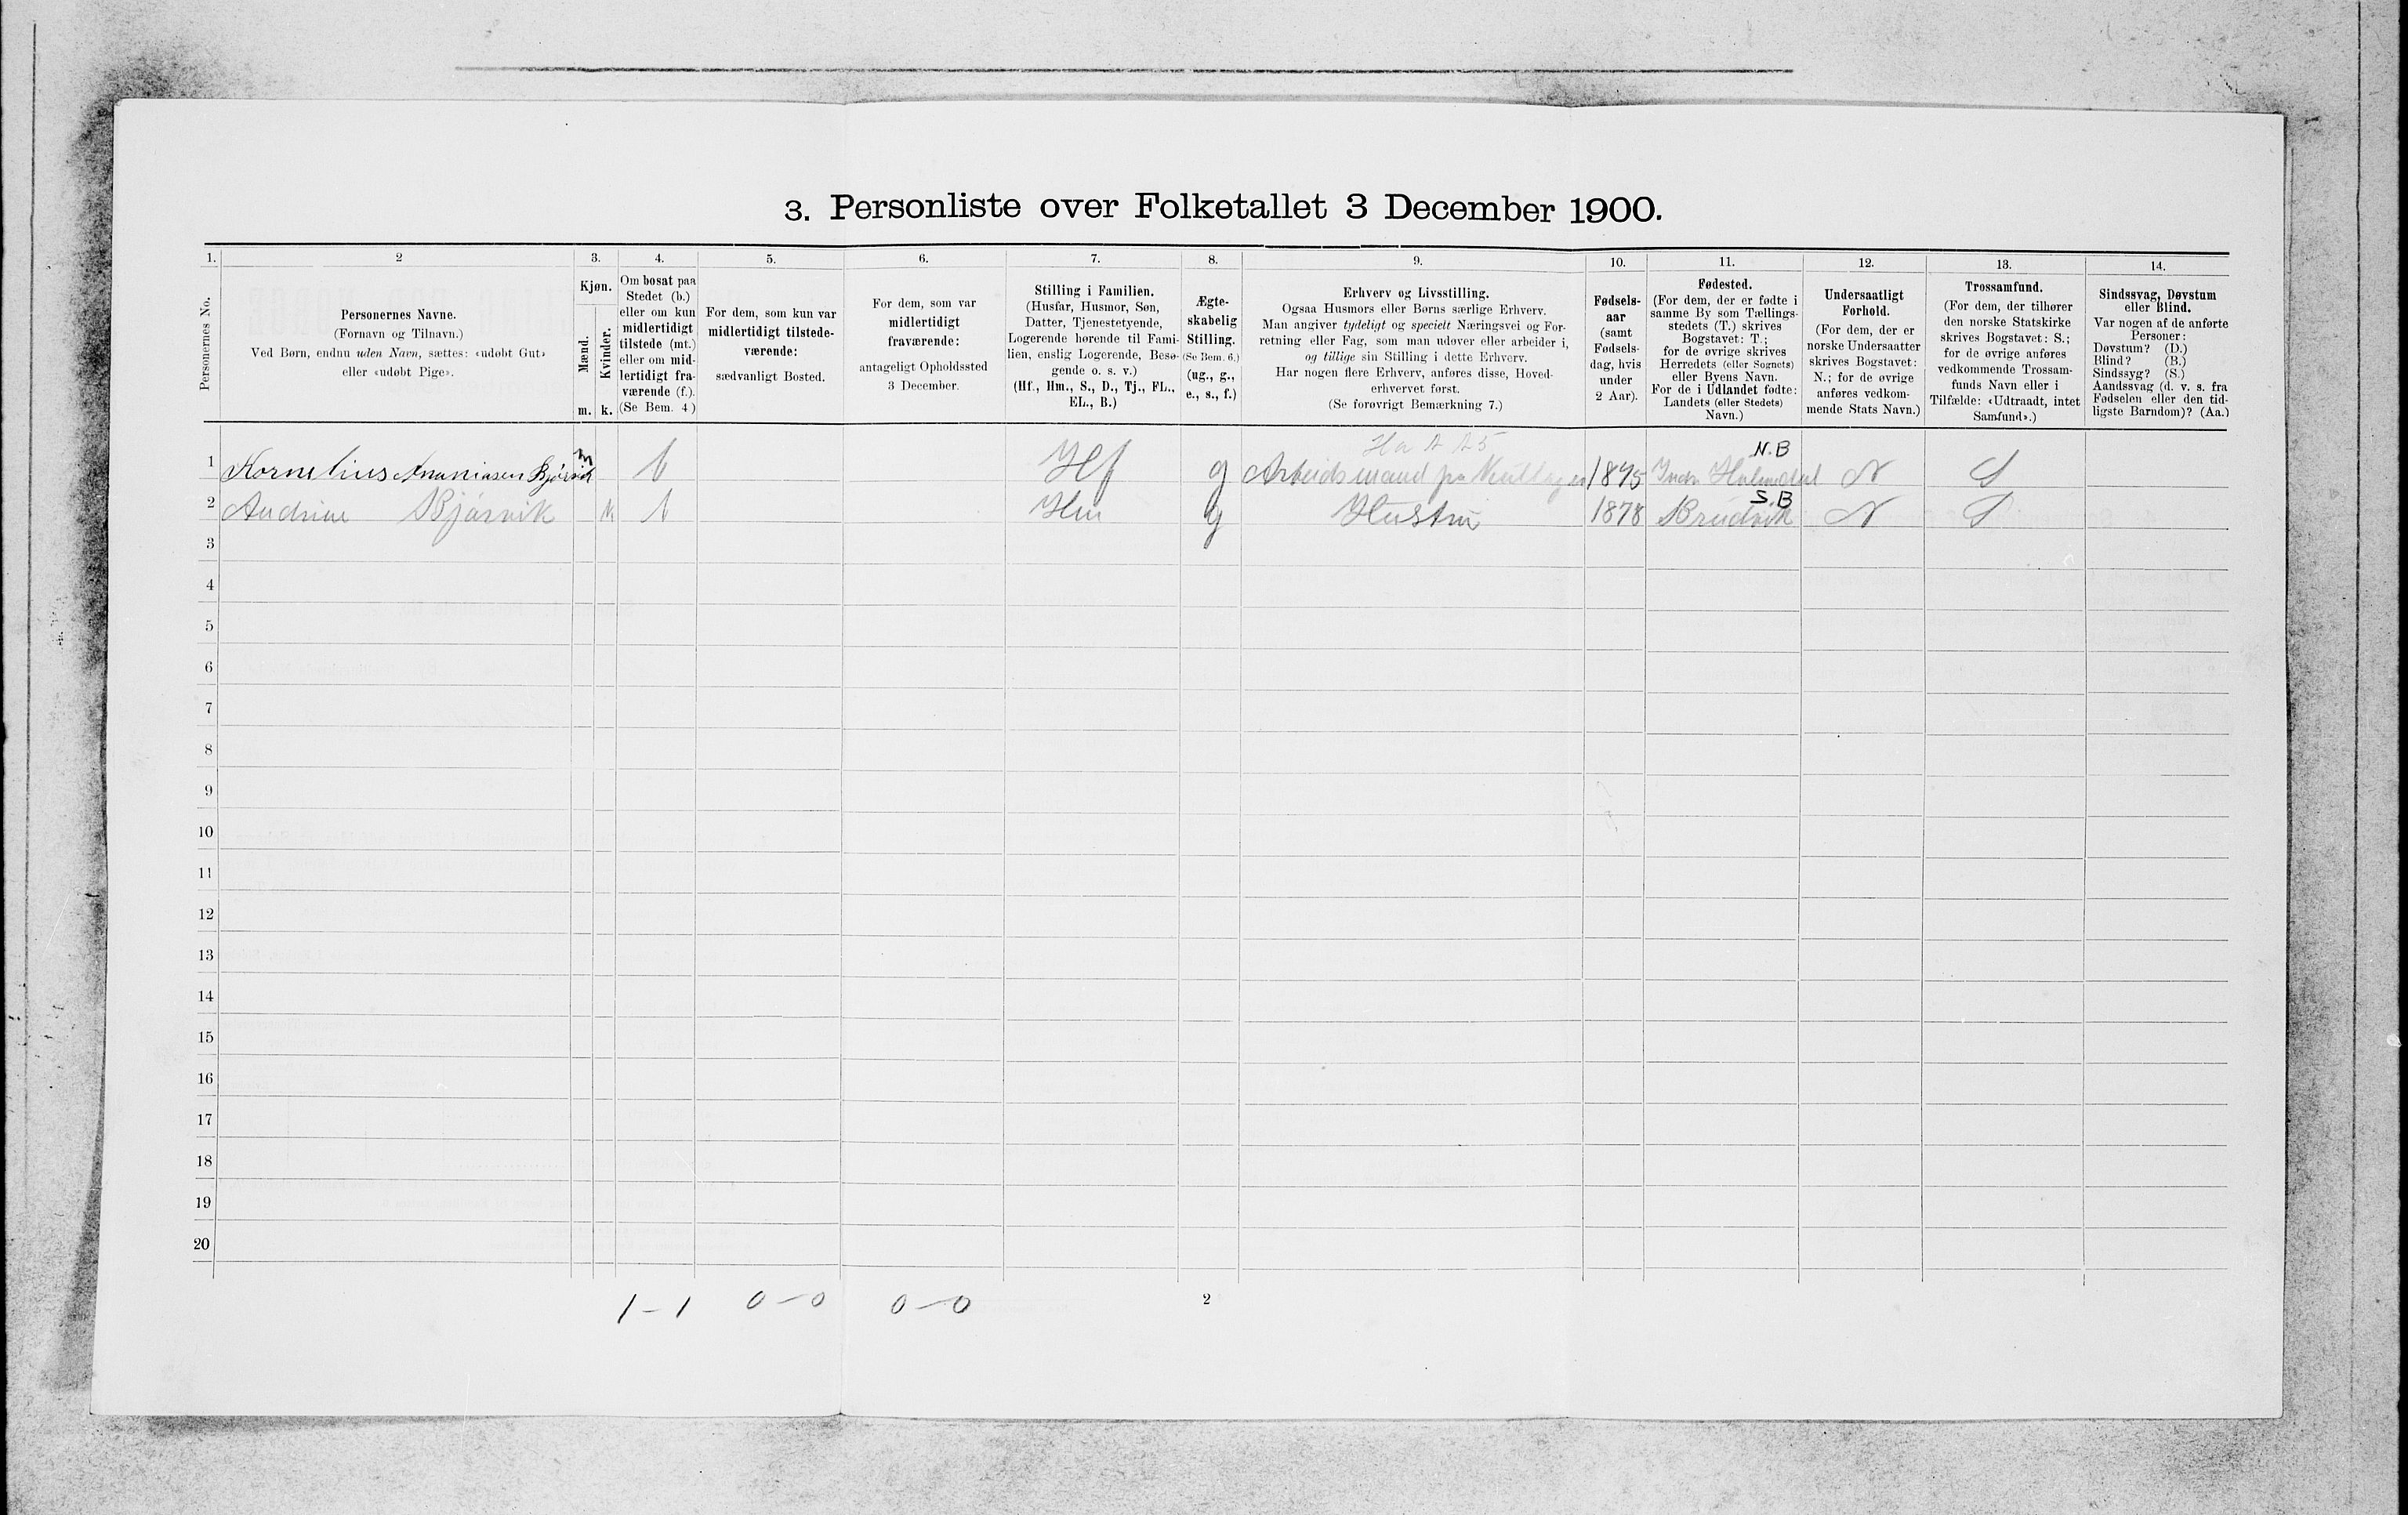 3. Personliste over Folketallet 3 December 1900.
1. 2 3. 4. 5. 6. 7. 8. 9. 10. 11. 12. 13. 14.
Personernes No.
Personernes Navne.
(Fornavn og Tilnavn.)
Ved Børn, endnu uden Navn, sættes: «udøbt Gut»
eller «udøbt Pige».
Kjøn.
Mænd.
Kvinder.
m. k.
Om bosat paa
Stedet (b.)
eller om kun
midlertidigt
tilstede (mt.)
eller om mid-
lertidigt fra-
værende (f.).
(Se Bem. 4)
For dem, som kun var
midlertidigt tilstede-
værende:
sædvanligt Bosted.
For dem, som var
midlertidigt
fraværende:
antageligt Opholdssted
3 December.
Stilling i Familien.
(Husfar, Husmor, Søn,
Datter, Tjenestetyende,
Logerende hørende til Fami-
lien, enslig Logerende, Besø-
gende o. s. v.)
(Hf., Hm., S., D., Tj., FL.,
EL., B.)
Ægte-
skabelig
Stilling.
(Se Bem. 6.)
(ug., g.,
e., s., f.)
Erhverv og Livsstilling.
Ogsaa Husmors eller Børns særlige Erhverv.
Man angiver tydeligt og specielt Næringsvei og For-
retning eller Fag, som man udøver eller arbeider i,
og tillige sin Stilling i dette Erhverv.
Har nogen flere Erhverv, anføres disse, Hoved-
erhvervet først.
(Se forøvrigt Bemærkning 7.)
Fødsels-
aar
(samt
Fødsels-
dag, hvis
under
2 Aar).
Fødested.
(For dem, der er fødte i
samme By som Tællings-
stedets (T.) skrives
Bogstavet: T.;
for de øvrige skrives
Herredets (eller Sognets)
eller Byens Navn.
For de i Udlandet fødte:
Landets (eller Stedets)
Navn.)
Undersaatligt
Forhold.
(For dem, der er
norske Undersaatter
skrives Bogstavet:
N.; for de øvrige
anføres vedkom-
mende Stats Navn.)
Trossamfund.
(For dem, der tilhører
den norske Statskirke
skrives Bogstavet: S.;
for de øvrige anføres
vedkommende Trossam-
funds Navn eller i
Tilfælde: «Udtraadt, intet
Samfund».)
Sindssvag, Døvstum
eller Blind.
Var nogen af de anførte
Personer:
Døvstum? (D.)
Blind? (B.)
Sindssyg? (S.)
Aandssvag (d. v. s. fra
Fødselen eller den tid-
ligste Barndom)? (Aa.)
N.B
1 Kornelius Ananiasen Bjørsvik m b Hf g Arbeidsmand paa 1875 Indr Holmedal N S
S.B
2 Andrine Bjørsvik k b Hm g Hustru 1878 Brudvik N S
3
4
5
6
7
8
9
10
11
12
13
14
15
16
17
18
19
20
1-1 0-0 0-0 2